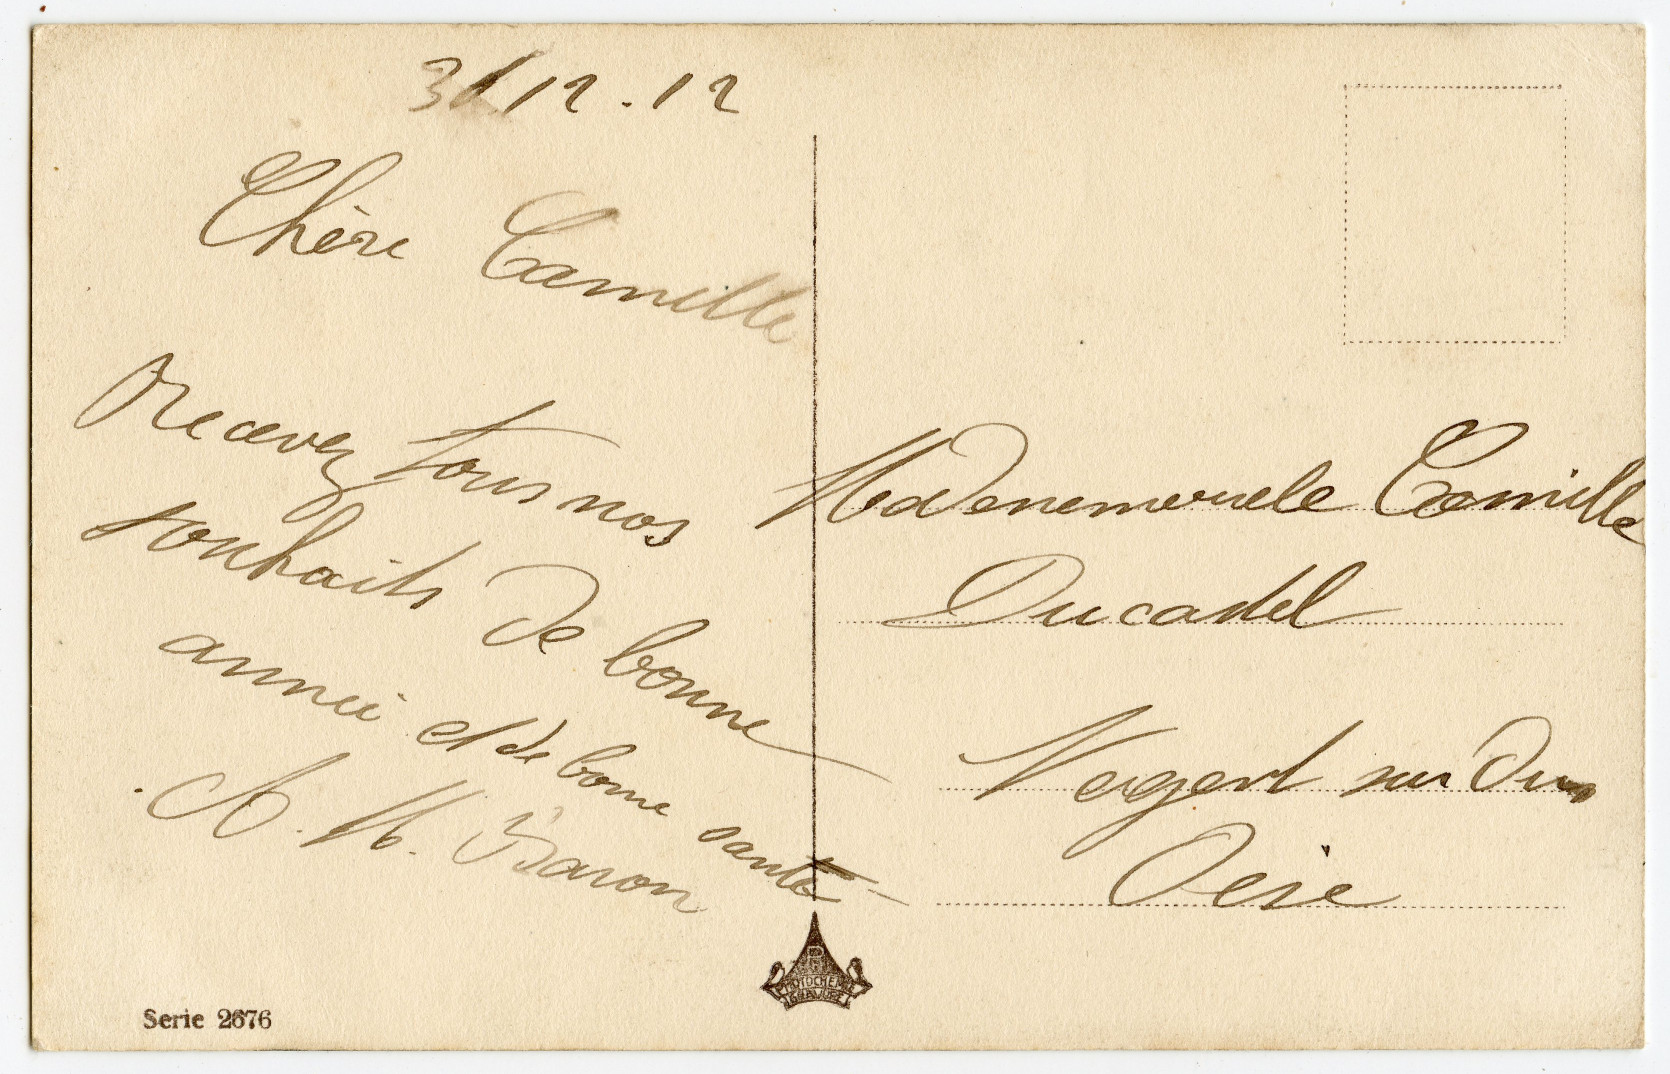 31/12.12
Chère Camille
Recevez tous nos
souhaits de bonne
année et de bonne santé
A. M. Baron
Mademoiselle Camille
Ducastel
sur
Oise
PHOTOCHEMIE
GRAVURE
Serie 2676